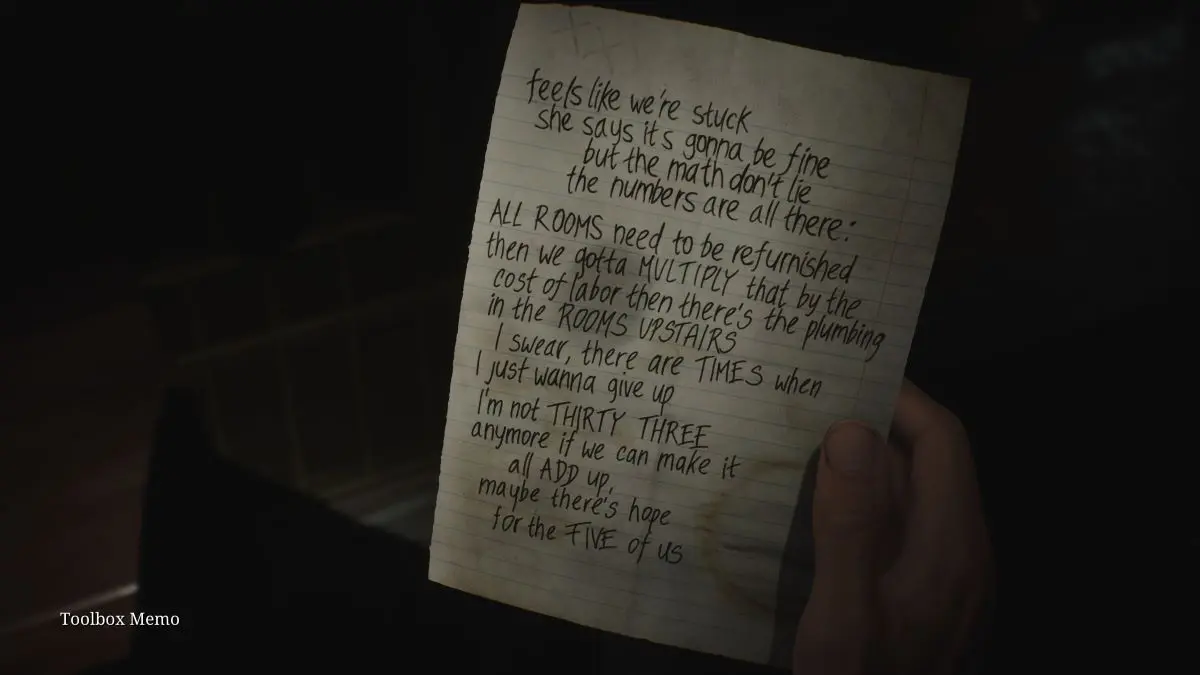 feels like we're stuck
she says it's gonna be fine
but the math don't lie
the numbers are all there:
ALL ROOMS need to be refurnished
then we gotta MULTIPLY that by the
cost of labor then there's the plumbing
in the ROOMS UPSTAIRS
I swear, there are TIMES when
I just wanna give up
I'm not THIRTY THREE
anymore if we can make it
all ADD up,
maybe there's hope
for the FIVE of us
Toolbox Memo